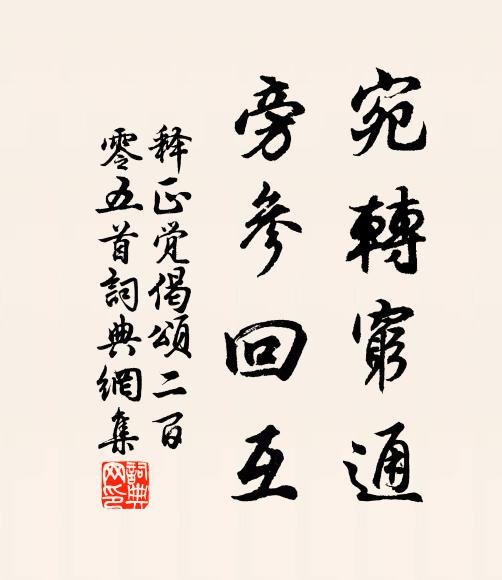 宛轉窮通
旁參回互
释正觉偈頌二百
零五首詞典網集
詞典
网印